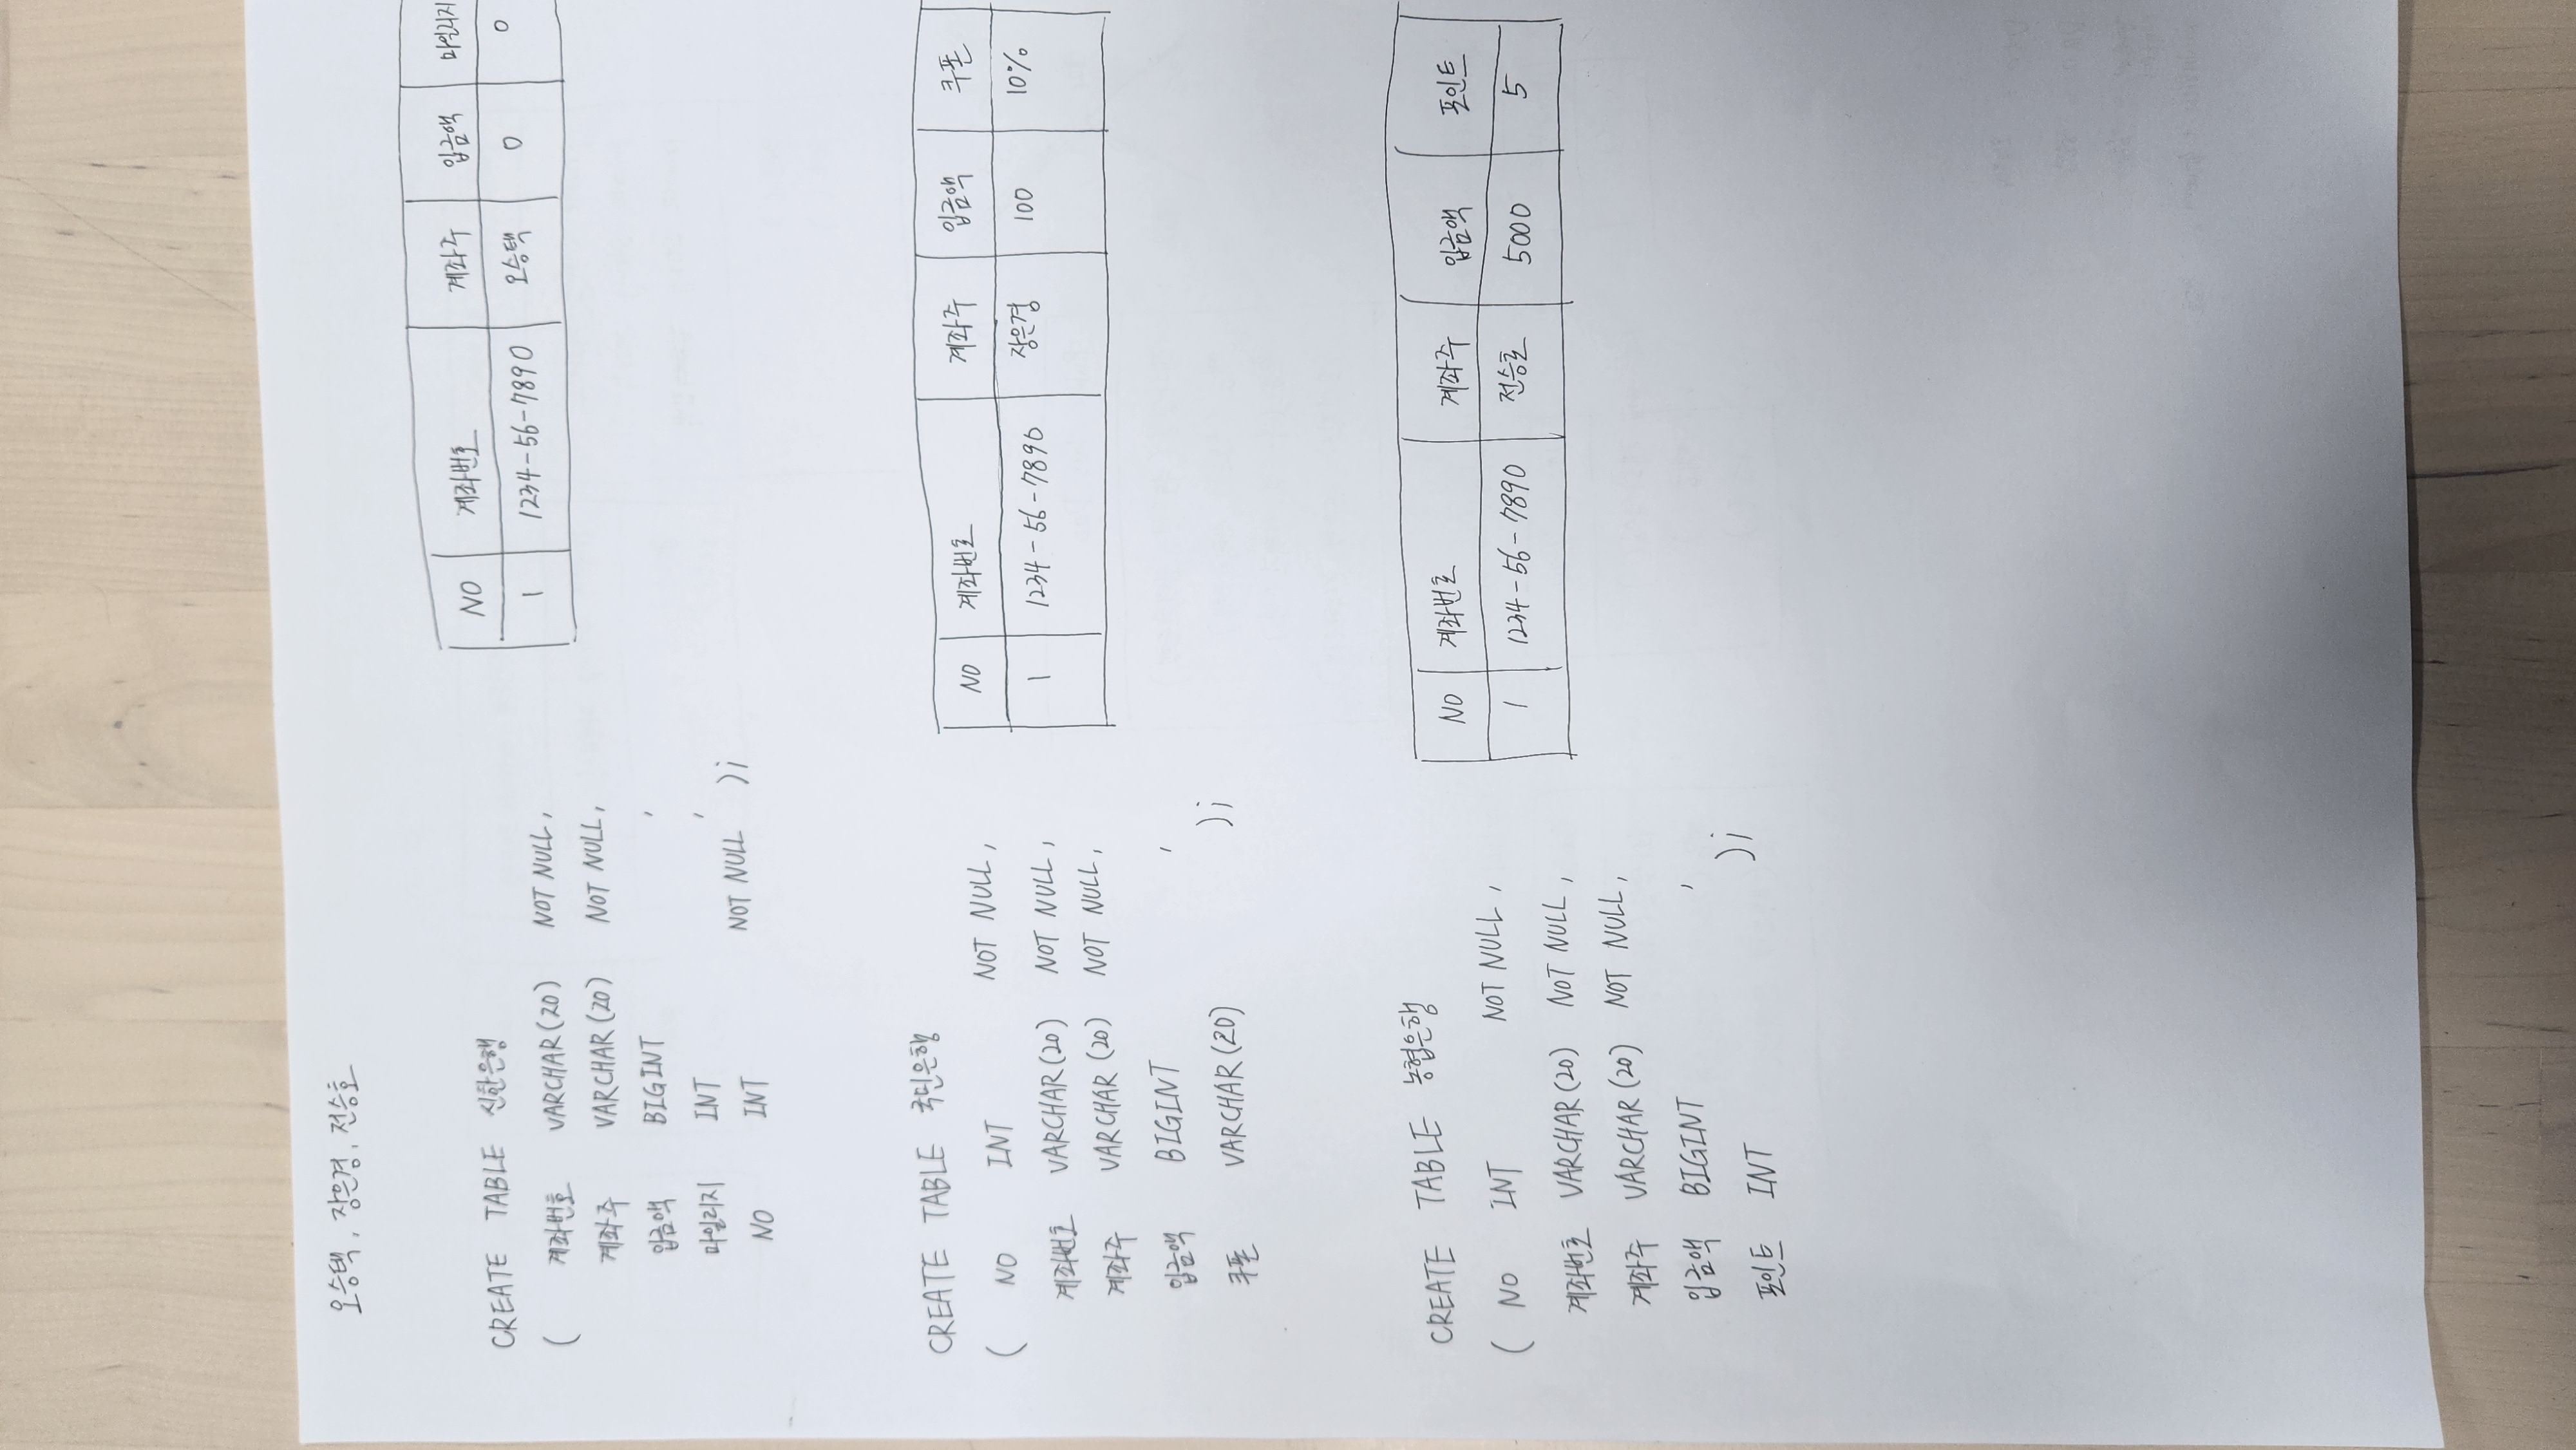 오승택, 장은경, 전승호
CREATE TABLE 신한은행
( 계좌번호 VARCHAR(20) NOT NULL,
계좌주 VARCHAR(20) NOT NULL,
입금액 BIGINT ,
마일리지 INT ,
NO INT NOT NULL );
NO 계좌번호 계좌주 입금액 마일리지
1 1234-56-7890 오승택 0 0
CREATE TABLE 국민은행
( NO INT NOT NULL,
계좌번호 VARCHAR(20) NOT NULL,
계좌주 VARCHAR(20) NOT NULL,
입금액 BIGINT ,
쿠폰 VARCHAR(20) );
NO 계좌번호 계좌주 입금액 쿠폰
1 1234-56-7890 장은경 100 10%
CREATE TABLE 농협은행
( NO INT NOT NULL,
계좌번호 VARCHAR(20) NOT NULL,
계좌주 VARCHAR(20) NOT NULL,
입금액 BIGINT ,
포인트 INT );
NO 계좌번호 계좌주 입금액 포인트
1 1234-56-7890 전승호 5000 5